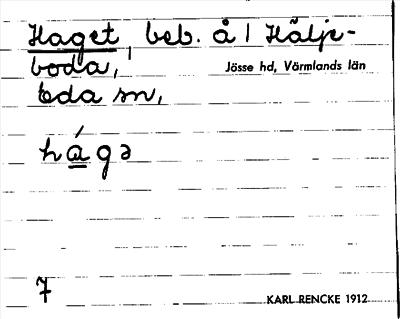 Haget, beb. å 1 Hälje-
boda,
Jösse hd, Värmlands län
Eda sn,
há̱gə
7
KARL RENCKE 1912